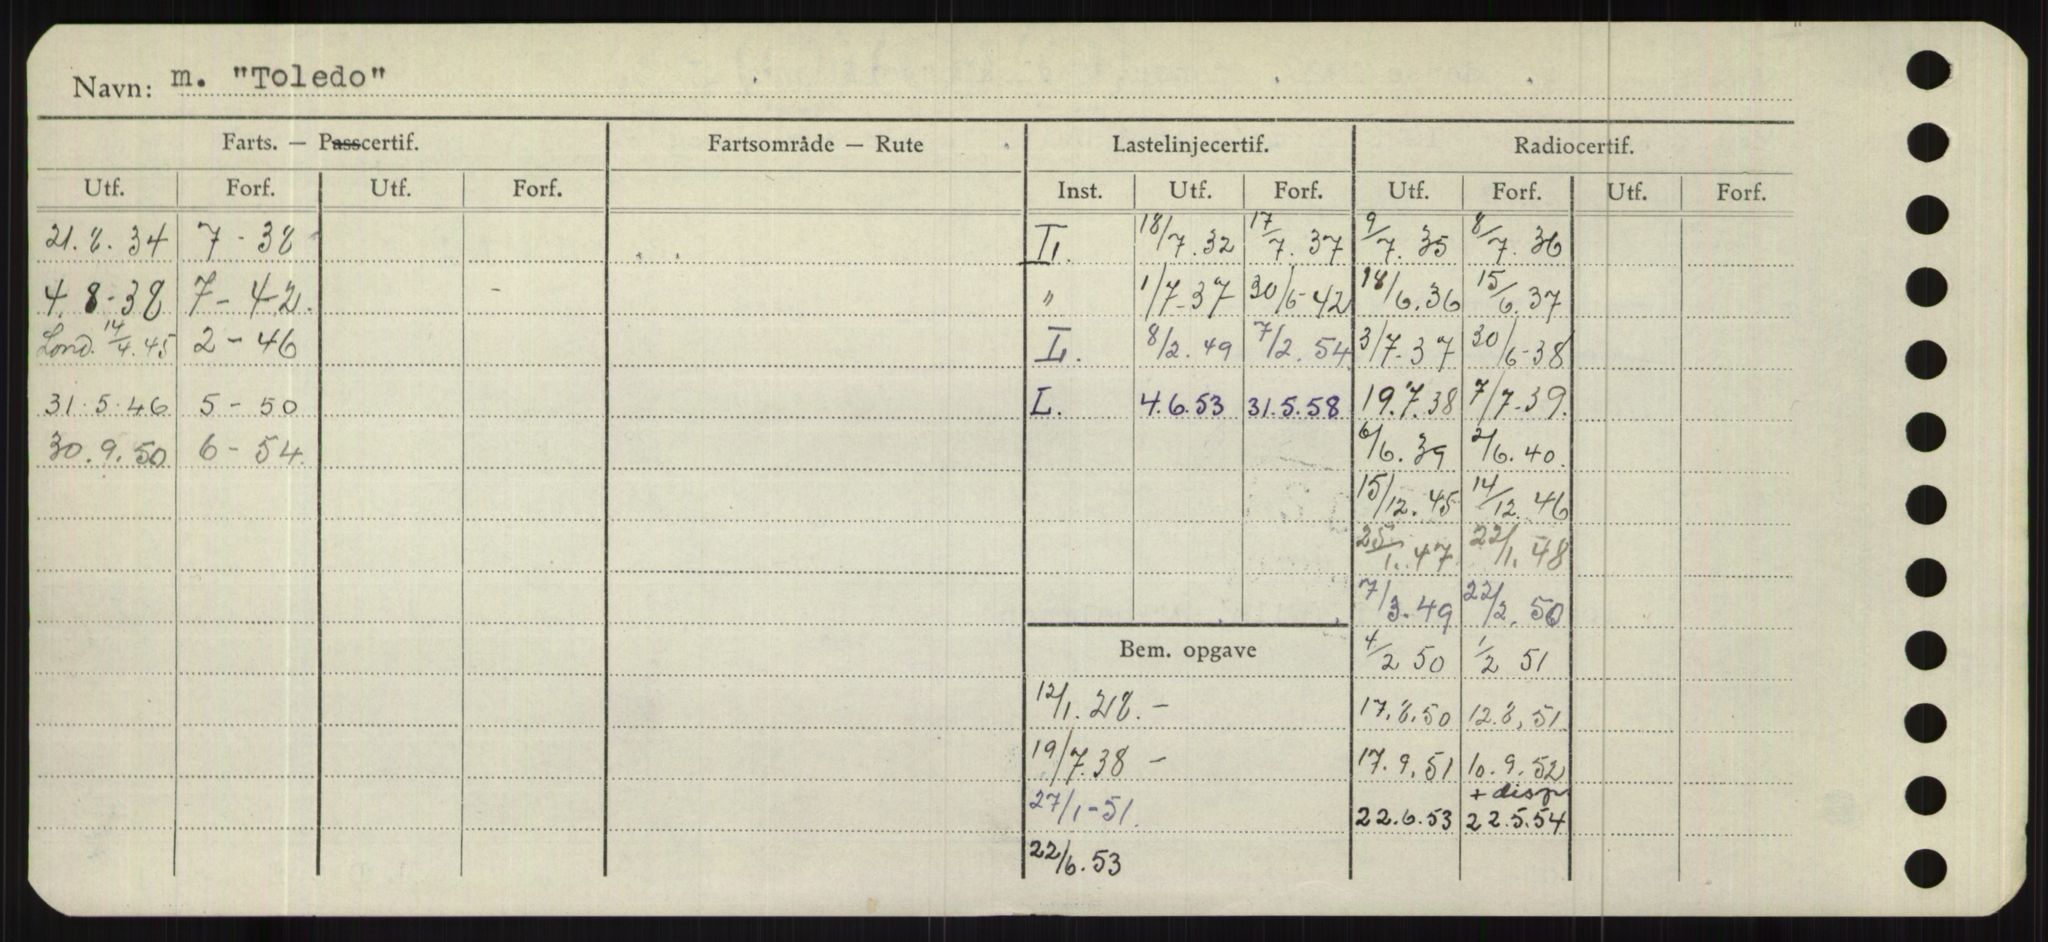 Navn: m. "Toledo"
Farts. — Passcertif. Fartsområde — Rute Lastelinjecertif. Radiocertif.
Utf. Forf. Utf. Forf. Inst. Utf. Forf. Utf. Forf. Utf. Forf.
21.8.34 7 - 38 L. 18/7.32 17/7.37 9/7.35 8/7.36
4.8-38 7-42. " 1/7-37 30/6-42 18/6.36 15/6.37
Lond. 14/4.45 2-46 L. 8/2.49 7/2.54 3/7-37 30/6-38
31.5.46 5-50 L. 4.6.53 31.5.58 19.7.38 7/7-39.
30.9.50 6-54 6/6.39 2/6.40.
15/12.45 14/12.46
25/1.47 22/1.48
7/3.49 22/2.50
Bem. opgave 4/2 50 1/2 51
12/1.28.- 17.8.50 12.8.51
19/7.38 - 17.9.51 10.9.52
+ disp
27/1-51. 22.6.53 22.5.54
22/6.53